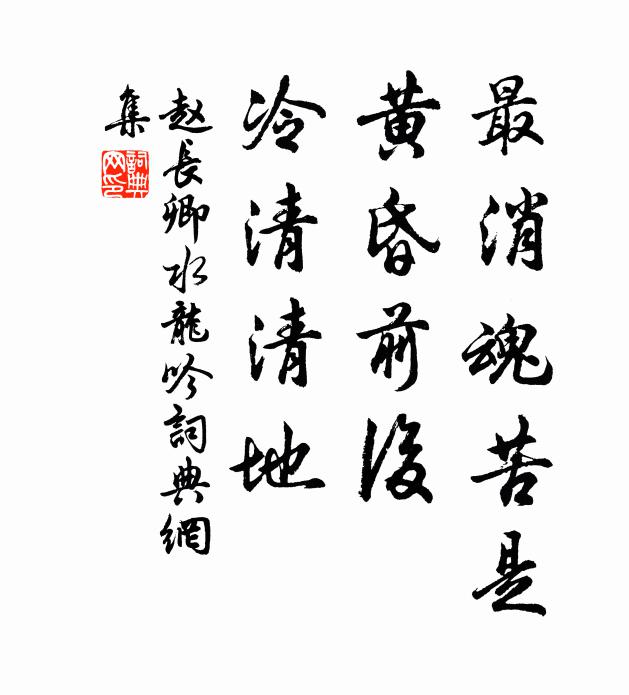 最消魂苦是
黄昏前後
冷清清地
赵長卿水龍吟詞典網
集
詞典
网印